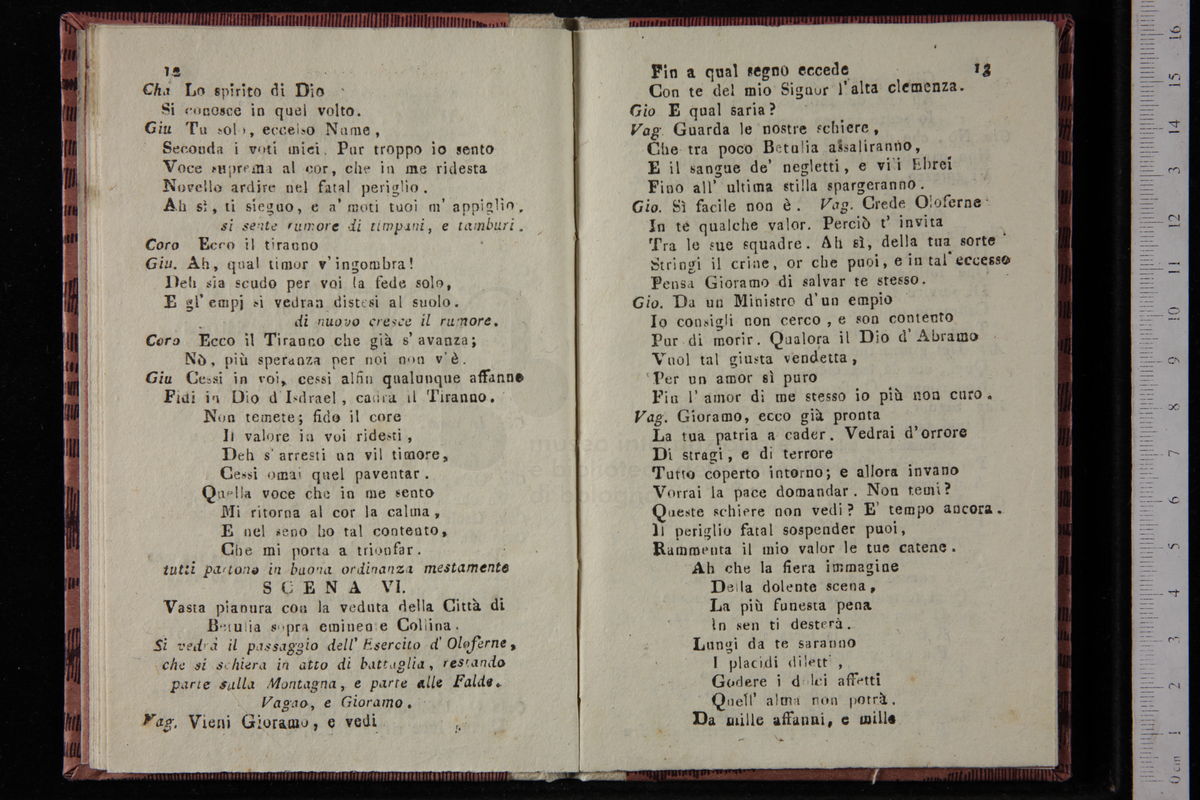 12
Cha Lo spirito di Dio
Si conosce in quel volto.
Giu Tu solo, eccelso Nume,
Seconda i voti miei. Pur troppo io sento
Voce suprema al cor, che in me ridesta
Novello ardire nel fatal periglio.
Ah sì, ti sieguo, e a' moti tuoi m' appiglio.
si sente rumore di timpani, e tamburi.
Coro Ecco il tiranno
Giu. Ah, qual timor v'ingombra!
Deh sia scudo per voi la fede solo,
E gl' empj si vedran distesi al suolo.
di nuovo cresce il rumore.
Coro Ecco il Tiranno che già s' avanza;
Nò, più speranza per noi non v'è.
Giu Cessi in voi, cessi alfin qualunque affanno
Fidi in Dio d'Isdrael, cadrà il Tiranno.
Non temete; fido il core
Il valore in voi ridesti,
Deh s' arresti un vil timore,
Cessi omai quel paventar.
Quella voce che in me sento
Mi ritorna al cor la calma,
E nel seno ho tal contento,
Che mi porta a trionfar.
tutti partono in buona ordinanza mestamente
SCENA VI.
Vasta pianura con la veduta della Città di
Betulia sopra eminente Collina.
Si vedrà il passaggio dell' Esercito d' Oloferne,
che si schiera in atto di battaglia, restando
parte sulla Montagna, e parte alle Falde.
Vagao, e Gioramo.
Vag. Vieni Gioramo, e vedi
13
Fin a qual segno eccede
Con te del mio Signor l'alta clemenza.
Gio E qual saria?
Vag. Guarda le nostre schiere,
Che tra poco Betulia assaliranno,
E il sangue de' negletti, e vili Ebrei
Fino all' ultima stilla spargeranno.
Gio. Sì facile non è. Vag. Crede Oloferne
In te qualche valor. Perciò t' invita
Tra le sue squadre. Ah sì, della tua sorte
Stringi il crine, or che puoi, e in tal eccesso
Pensa Gioramo di salvar te stesso.
Gio. Da un Ministro d'un empio
Io consigli non cerco, e son contento
Pur di morir. Qualora il Dio d' Abramo
Vuol tal giusta vendetta,
Per un amor sì puro
Fin l' amor di me stesso io più non curo.
Vag. Gioramo, ecco già pronta
La tua patria a cader. Vedrai d'orrore
Di stragi, e di terrore
Tutto coperto intorno; e allora invano
Vorrai la pace domandar. Non temi?
Queste schiere non vedi? E' tempo ancora.
Il periglio fatal sospender puoi,
Rammenta il mio valor le tue catene.
Ah che la fiera immagine
Della dolente scena,
La più funesta pena
In sen ti desterà.
Lungi da te saranno
I placidi diletti,
Godere i dolci affetti
Quell' alma non potrà.
Da mille affanni, e mille